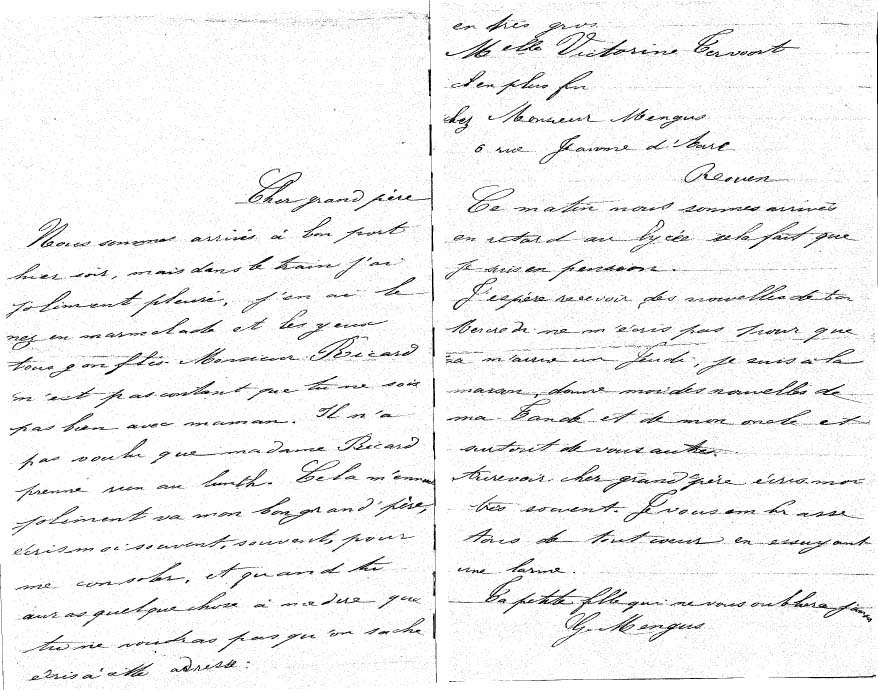 Cher grand père
Nous sommes arrivés à bon port
hier soir, mais dans le train j'ai
joliment pleuré, j'en ai le
nez en marmelade et les yeux
tous gonflés. Monsieur Ricard
n'est pas contant que tu ne sois
pas bien avec maman. Il n'a
pas voulu que madame Ricard
prenne rien au lunth. Cela m'ennuie
joliment va mon bon grand'père,
écris moi souvent, souvent, pour
me consoler, et quand tu
auras quelque chose à me dire que
tu ne voudras pas qu'on sache
écris à cette adresse:
en très gros
Melle Victorine Tervoort
et en plus fin
chez Monsieur Mengus
6 rue Jeanne d'Arc
Rouen
Ce matin nous sommes arrivés
en retard au lycée cela fait que
je suis en pension.
J'espère recevoir des nouvelles de toi
Mercredi ne m'écris pas pour que
ça m'arrive un Jeudi, je suis à la
maison, donne moi des nouvelles de
ma Tante et de mon oncle et
surtout de vous autres.
Aurevoir cher grand'père écris moi
très souvent. Je vous embrasse
tous de tout coeur en essuyant
une larme.
Ta petite fille qui ne vous oubliera jamais
G. Mengus